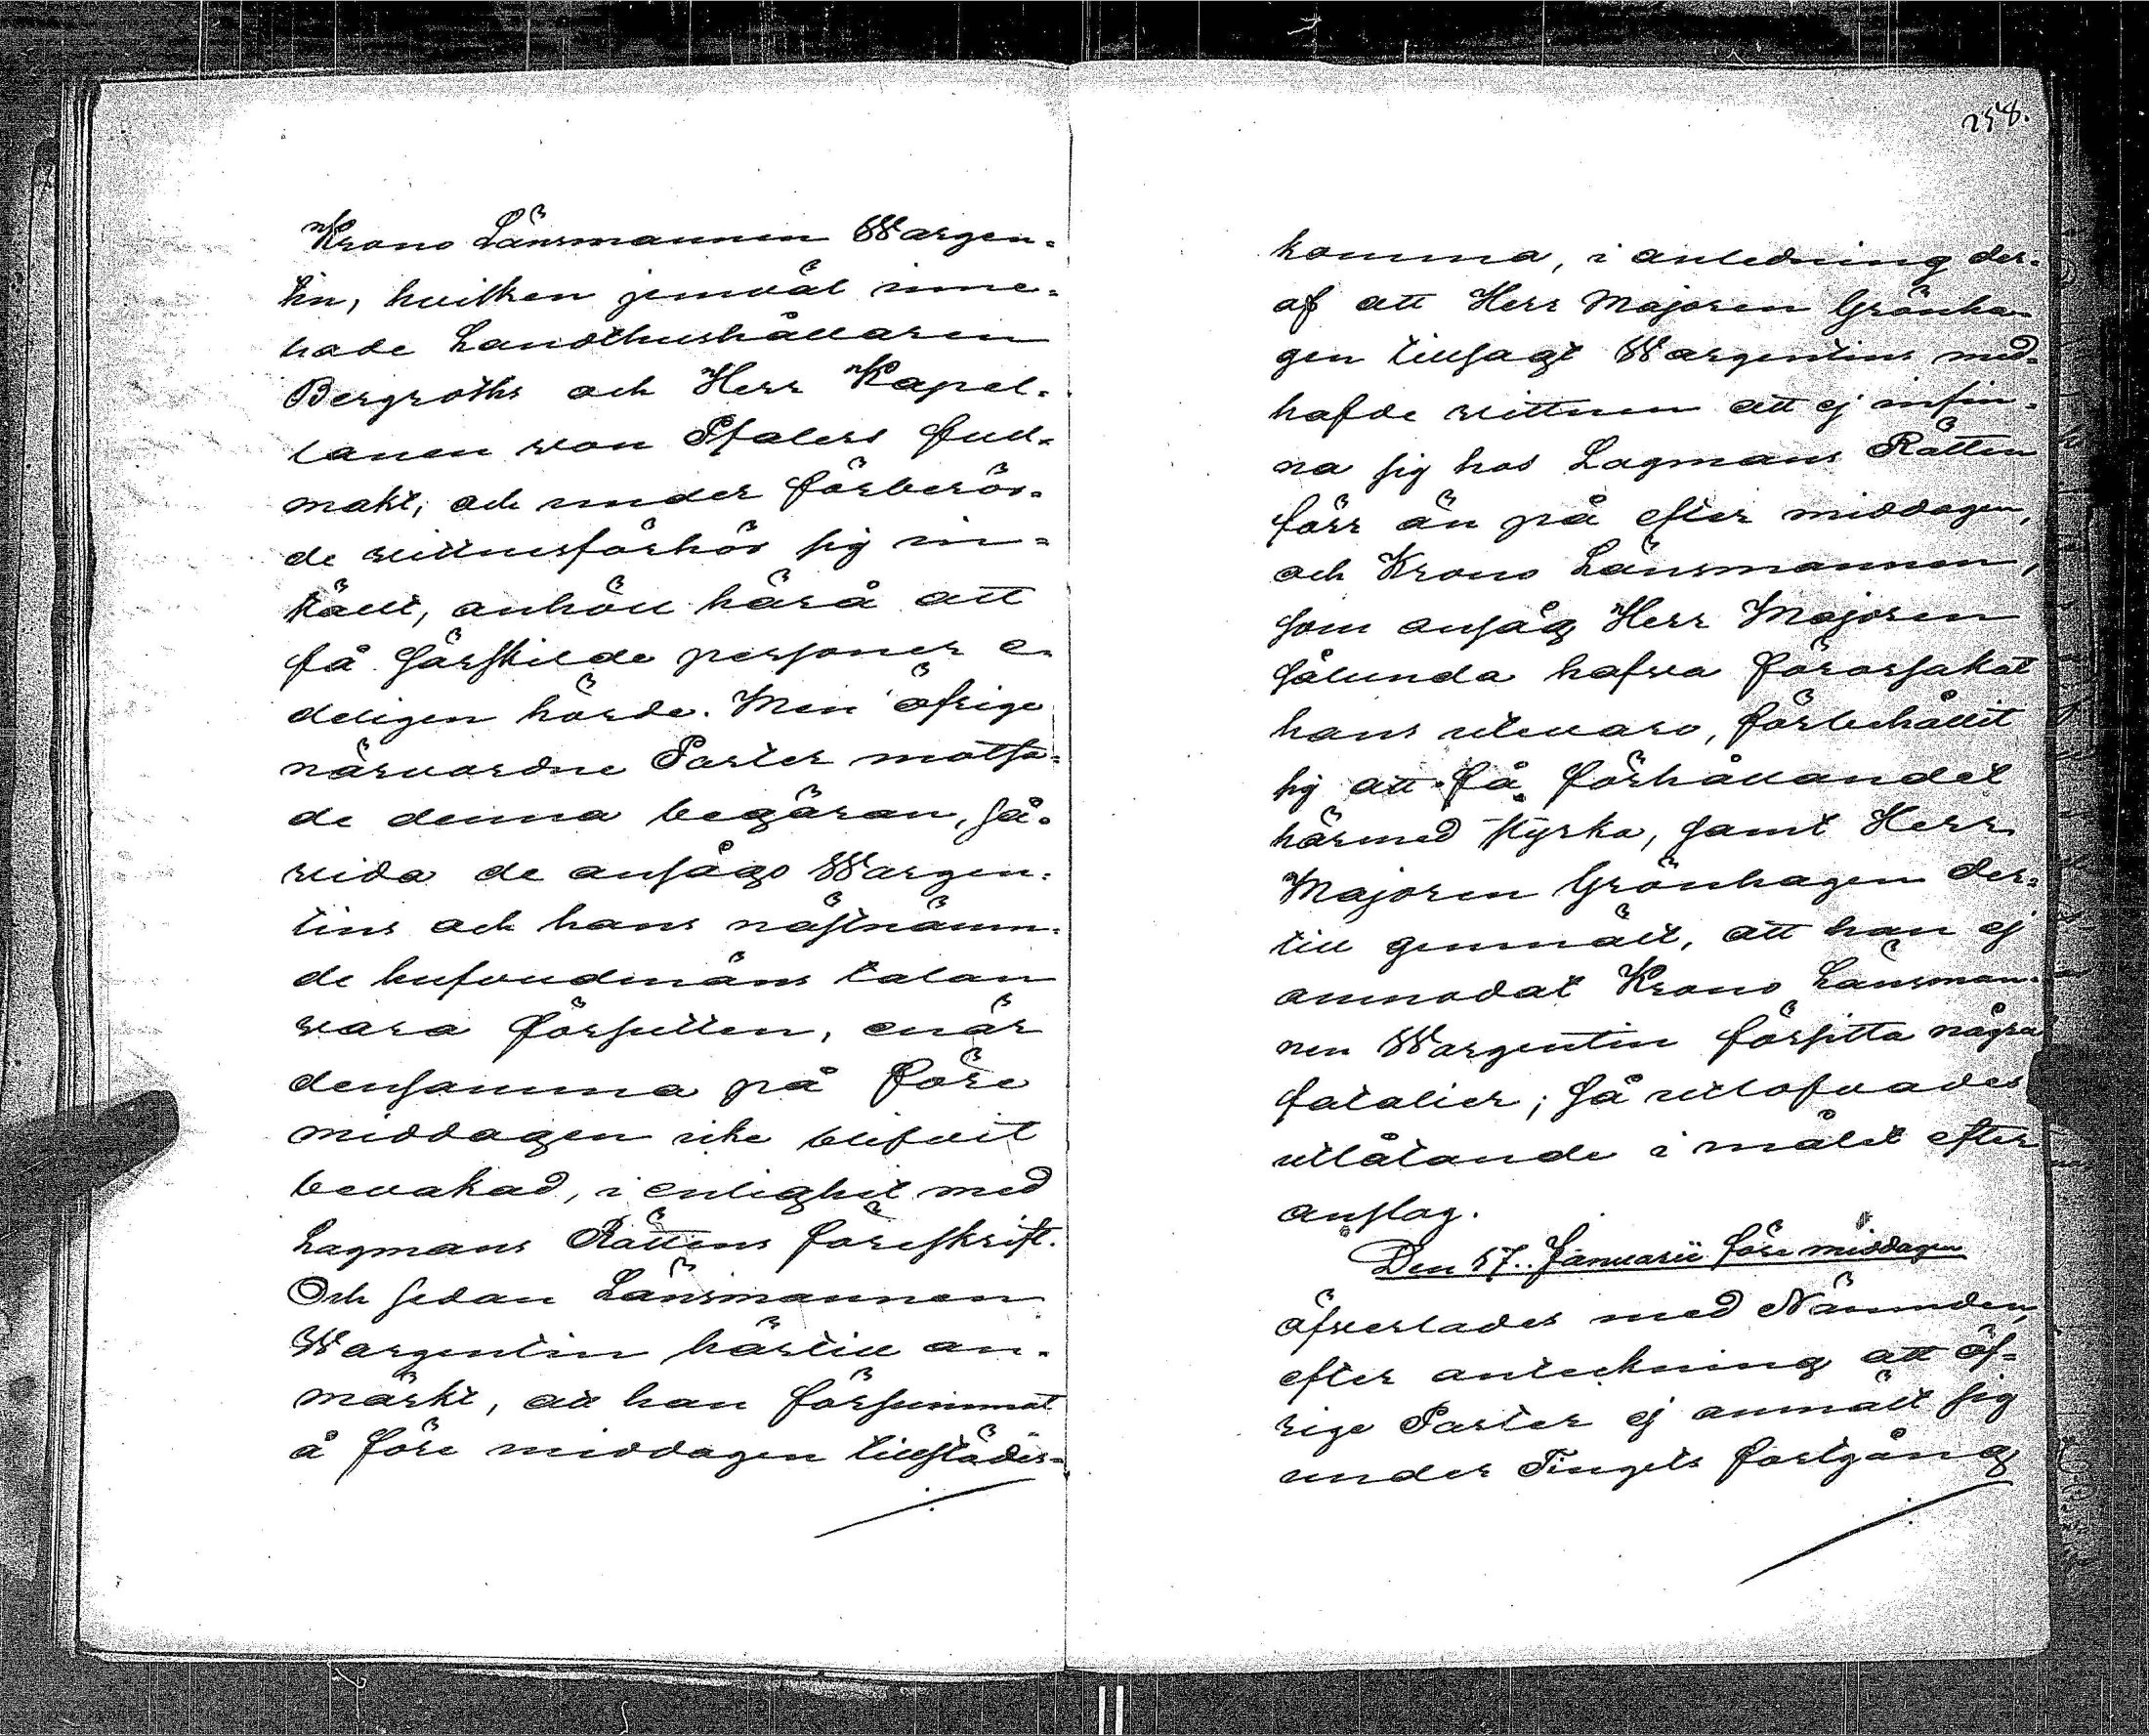 Krono Länsmannen Wargen-
tin, hvilken jemväl inne-
hade Landthushållaren
Bergroths och Herr Kapel-
lanen von Pfalers full-
makt, och under förberör-
de vittnesförhör sig in-
ställt, anhöll härå att
få särskilde personer e-
deligen hörde. Men öfrige
närvardne Parter motsa-
de denna begäran, så-
vida de ansågo Wargen-
tins och hans nästnämn-
de hufvudmäns talan
vara försutten, enär
densamma på före
middagen icke blifvit
bevakad, i enlighet med
Lagmans Rättens föreskrift.
Och sedan Länsmannen
Wargentin härtill an-
märkt, att han försummat
å före middagen tillstädes-
258.
komma, i anledning der-
af att Herr Majoren Grönha-
gen tillsagt Wargentins med-
hafde vittnen att ej infin-
na sig hos Lagmans Rätten
förr än på efter middagen,
och Krono Länsmannen,
som ansåg Herr Majoren
sålunda hafva förorsakat
hans utevaro, förbehållit
sig att få förhållandet
härmed styrka, samt Herr
Majoren Grönhagen der-
till genmält, att han ej
anmodat Krono Länsman-
nen Wargentin försitta några
fatalier; så utlofvades
utlåtande i målet efter
anslag.
Den 17. Januarii före middagen
öfverlades med Nämnden,
efter anteckning att öf-
rige Parter ej anmält sig
under Tingets fortgång